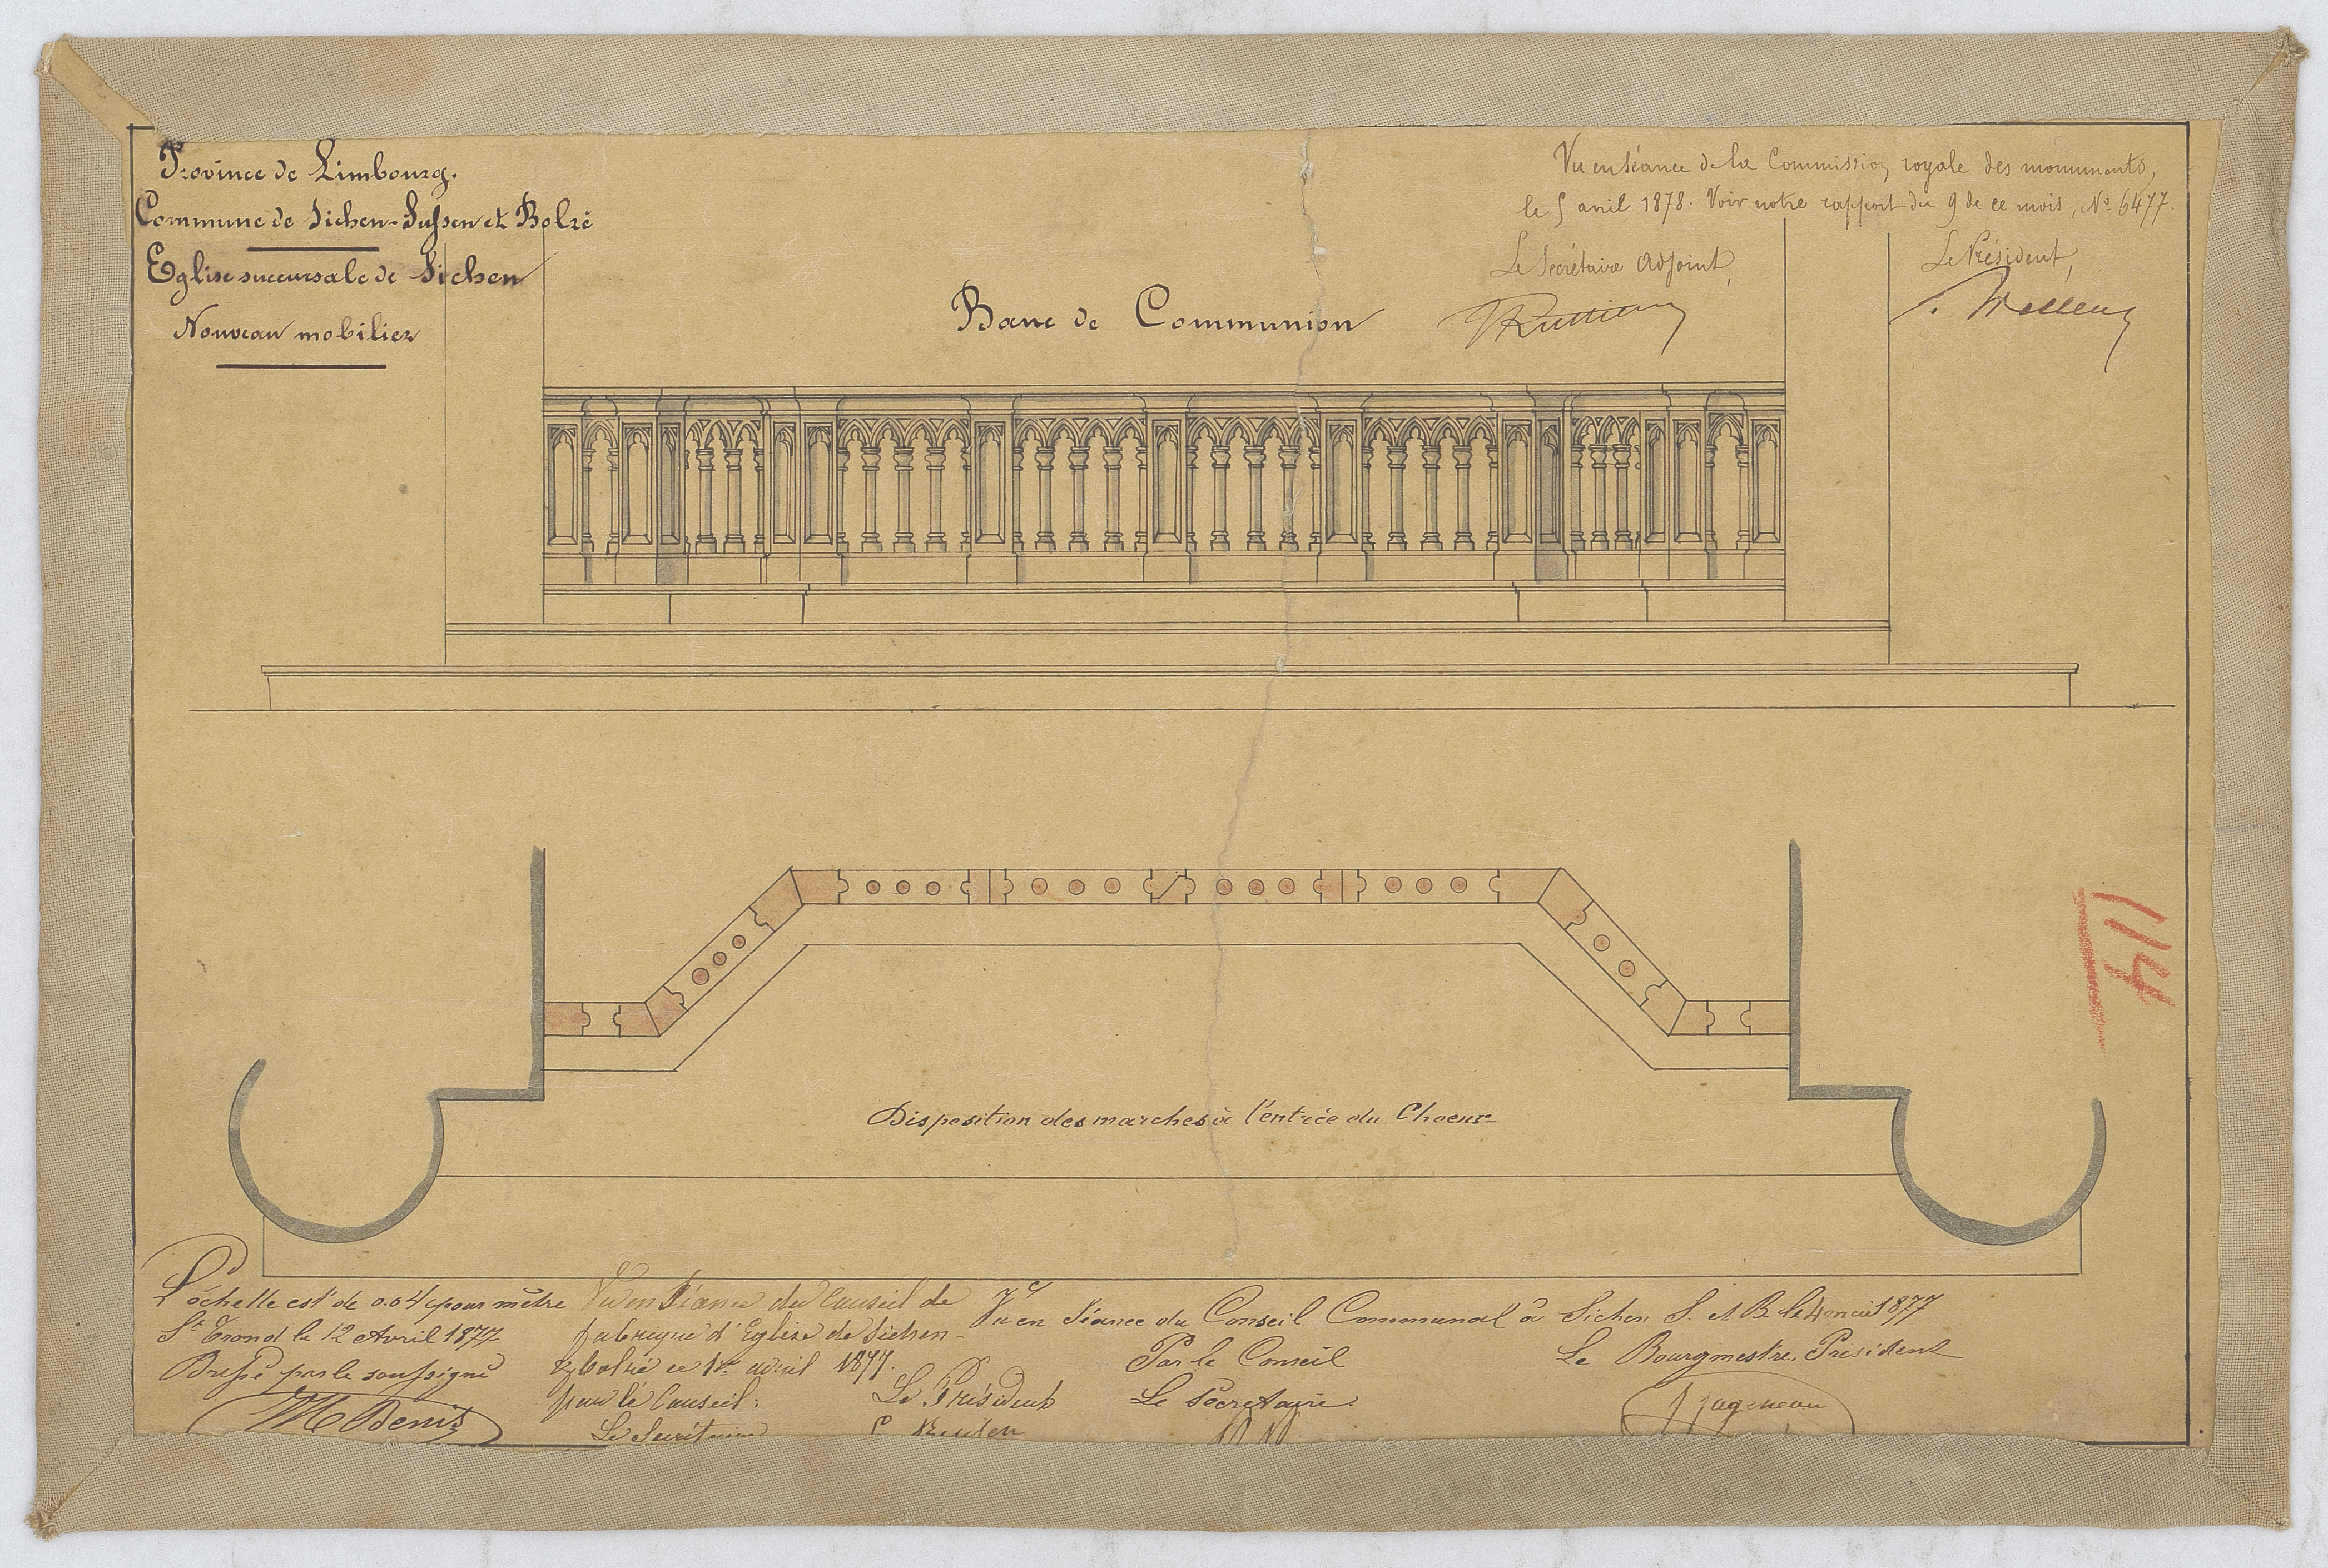 Province de Limbourg.
Commune de Sichen-Sussen et Bolré
Eglise succursale de Sichen
Nouveau mobilier
Vu en séance de la Commission royale des monuments,
le 5 avril 1878. Voir notre rapport du 9 de ce mois, No 6477.
Le Secrétaire adjoint,
Le Président,
Banc de Communion
114
Disposition des marches à l'entrée du Choeur
L'échelle est de 0.04 c pour mètre
St Trond le 12 Avril 1877
Dressé par le soussigné
M Denis
Vu en Séance du Conseil de
fabrique d'Eglise de Sichen-
& Bolré ce 1er avril 1877.
pour le Conseil:
Le Secrétaire
Le Président
Vu en Séance du Conseil Communal à Sichen S. et B. le 4 1877
Par le Conseil
Le Secretaire
Le Bourgmestre, Président